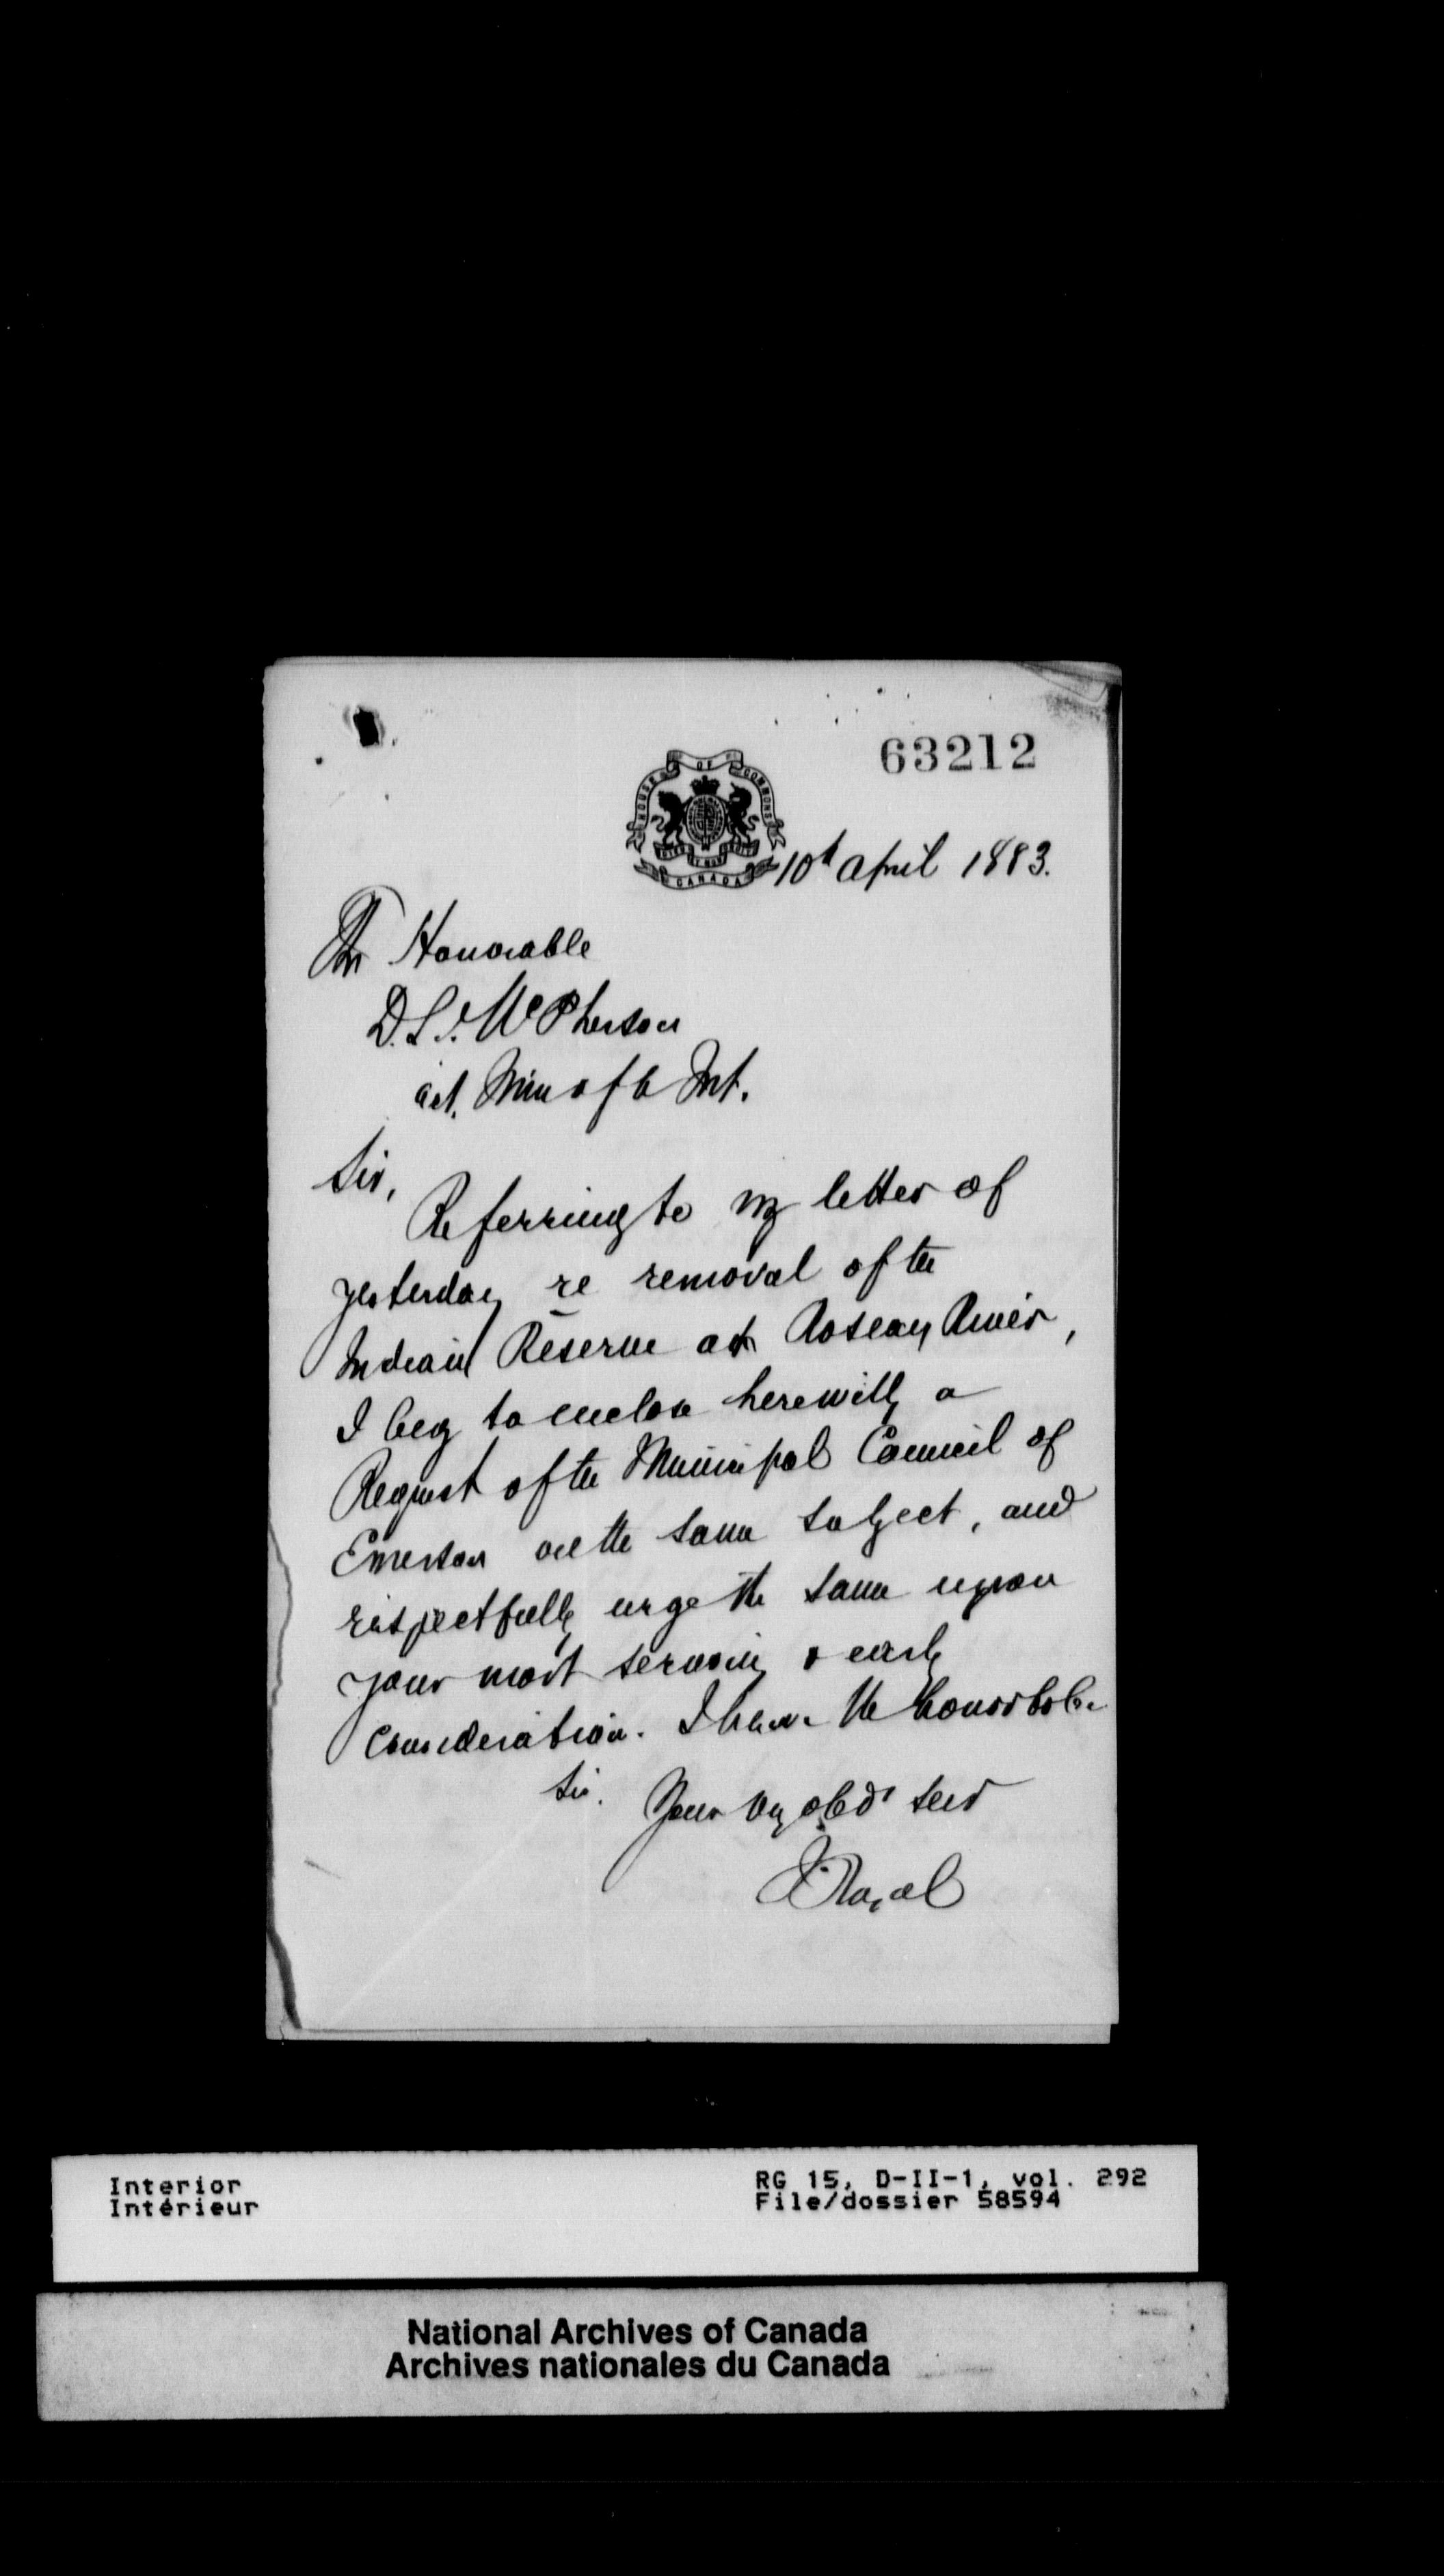 63212
HOUSE OF COMMONS
CANADA
10t april 1883.
The Honorable
D. L. McPherson
act. Min of the Int.
Sir,
Referring to my letter of
yesterday re removal of the
Indian Reserve at Roseau River,
I beg to enclose herewith a
Request of the Municipal Council of
Emerson on the same subject, and
respectfully urge the same upon
your most serious & early
consideration. I have the honor to be
Sir.
Your vy obdt serv
J Royal
Interior
Intérieur
RG 15, D-II-1, vol. 292
File/dossier 58594
National Archives of Canada
Archives nationales du Canada